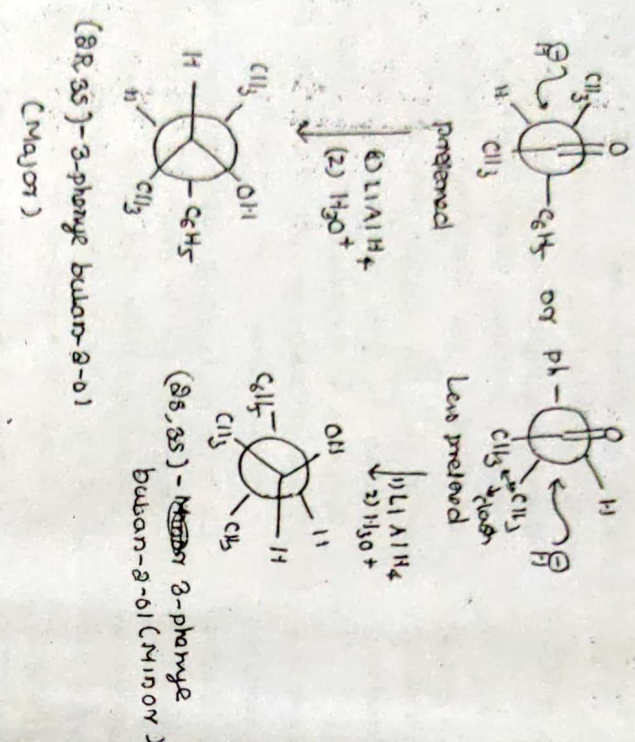 O
CH3
H
C6H5 or Ph
CH3
H
O
H
CH3
CH3
clash
H
preferred
Less prefered
(1) LiAlH4
(2) H3O+
(1) LiAlH4
2) H3O+
CH3
OH
H
C6H5
H
CH3
OH
H
C6H5
CH3
H
CH3
(2R,3S)-3-phenye butan-2-ol
(Major)
(2S,3S)- 3-phenye
butan-2-ol (Minor)